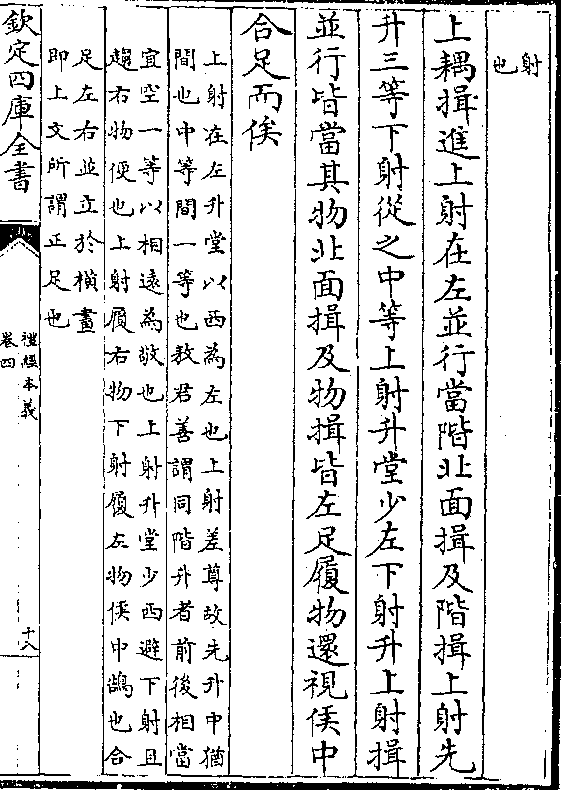 射
也
上耦揖進上射在左並行當階北面揖及階揖上射先
升三等下射從之中等上射升堂少左下射升上射揖
並行皆當其物北面揖及物揖皆左足履物還視侯中
合足而俟
上射在左升堂以西為左也上射差尊故先升中猶
間也中等間一等也敖君善謂同階升者前後相當
宜空一等以相遠為敬也上射升堂少西避下射且
趨右物便也上射履右物下射履左物侯中鵠也合
足左右並立於横畫
即上文所謂正足也
欽定四庫全書
禮經本義
卷四
十八